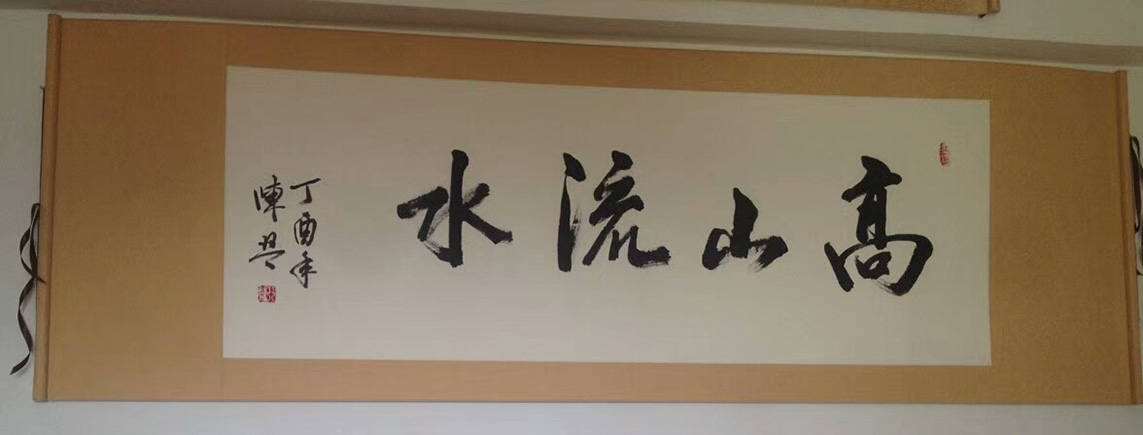 高山流水
丁酉年
陳